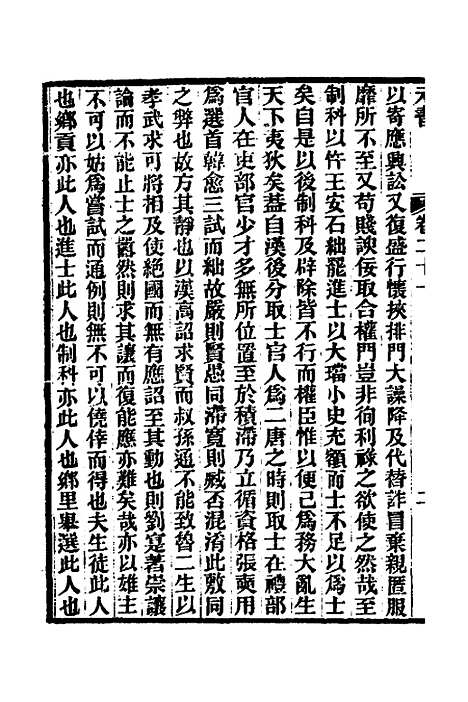 元書 卷二十一 二
以寄應興訟又復盛行懷挾排門大譟降及代替詐冒棄親匿服
靡所不至又苟賤諛佞取合權門豈非徇利祿之欲使之然哉至
制科以忤王安石絀罷進士以大璫小史充額而士不足以爲士
矣自是以後制科及辟除皆不行而權臣惟以便己爲務大亂生
天下夷狄矣葢自漢後分取士官人爲二唐之時則取士在禮部
官人在吏部官少才多無所位置至於積滯乃立循資格張奭用
爲選首韓愈三試而絀故嚴則賢愚同滯寬則臧否混淆此敷同
之弊也故方其靜也以漢高詔求賢而叔孫通不能致魯二生以
孝武求可將相及使絕國而無有應詔至其動也則劉寔著崇讓
論而不能止士之囂然則求其讓而復能應亦難矣哉亦以雄主
不可以姑爲嘗試而通例則無不可以僥倖而得也夫生徒此人
也鄉貢亦此人也進士此人也制科亦此人也鄉里舉選此人也